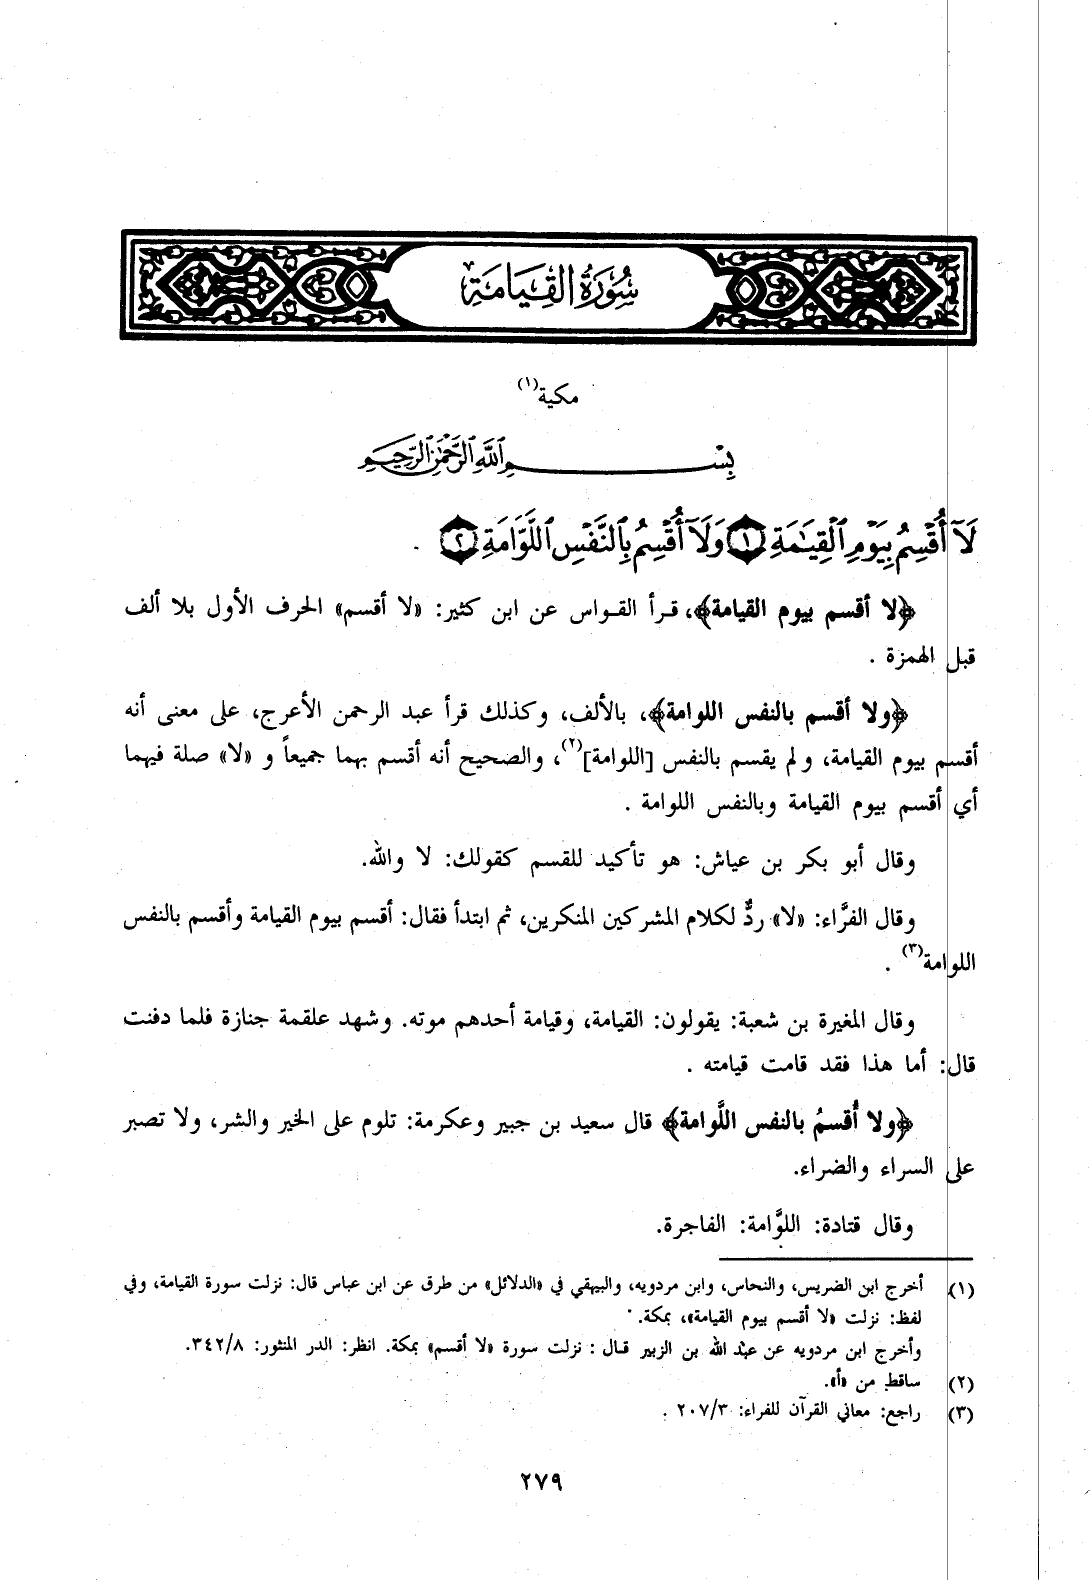 سُورَةُ القِيَامَة
مكية(١)
بِسْمِ ٱللَّهِ ٱلرَّحْمَٰنِ ٱلرَّحِيمِ
لَآ أُقْسِمُ بِيَوْمِ ٱلْقِيَٰمَةِ ١ وَلَآ أُقْسِمُ بِٱلنَّفْسِ ٱللَّوَّامَةِ ٢ .
﴿لا أقسم بيوم القيامة﴾، قرأ القواس عن ابن كثير: «لا أقسم» الحرف الأول بلا ألف
قبل الهمزة .
﴿ولا أقسم بالنفس اللوامة﴾، بالألف، وكذلك قرأ عبد الرحمن الأعرج، على معنى أنه
أقسم بيوم القيامة، ولم يقسم بالنفس [اللوامة](٢)، والصحيح أنه أقسم بهما جميعاً و «لا» صلة فيهما
أي أقسم بيوم القيامة وبالنفس اللوامة .
وقال أبو بكر بن عياش: هو تأكيد للقسم كقولك: لا والله.
وقال الفرَّاء: «لا» ردٌّ لكلام المشركين المنكرين، ثم ابتدأ فقال: أقسم بيوم القيامة وأقسم بالنفس
اللوامة(٣) .
وقال المغيرة بن شعبة: يقولون: القيامة، وقيامة أحدهم موته. وشهد علقمة جنازة فلما دفنت
قال: أما هذا فقد قامت قيامته .
﴿ولا أُقسمُ بالنفس اللَّوامة﴾ قال سعيد بن جبير وعكرمة: تلوم على الخير والشر، ولا تصبر
على السراء والضراء.
وقال قتادة: اللوَّامة: الفاجرة.
(١) أخرج ابن الضريس، والنحاس، وابن مردويه، والبيهقي في «الدلائل» من طرق عن ابن عباس قال: نزلت سورة القيامة، وفي
لفظ: نزلت «لا أقسم بيوم القيامة»، بمكة.
وأخرج ابن مردويه عن عبد الله بن الزبير قال : نزلت سورة «لا أقسم» بمكة. انظر: الدر المنثور: ٣٤٢/٨.
(٢) ساقط من «أ».
(٣) راجع: معاني القرآن للفراء: ٢٠٧/٣ .
٢٧٩